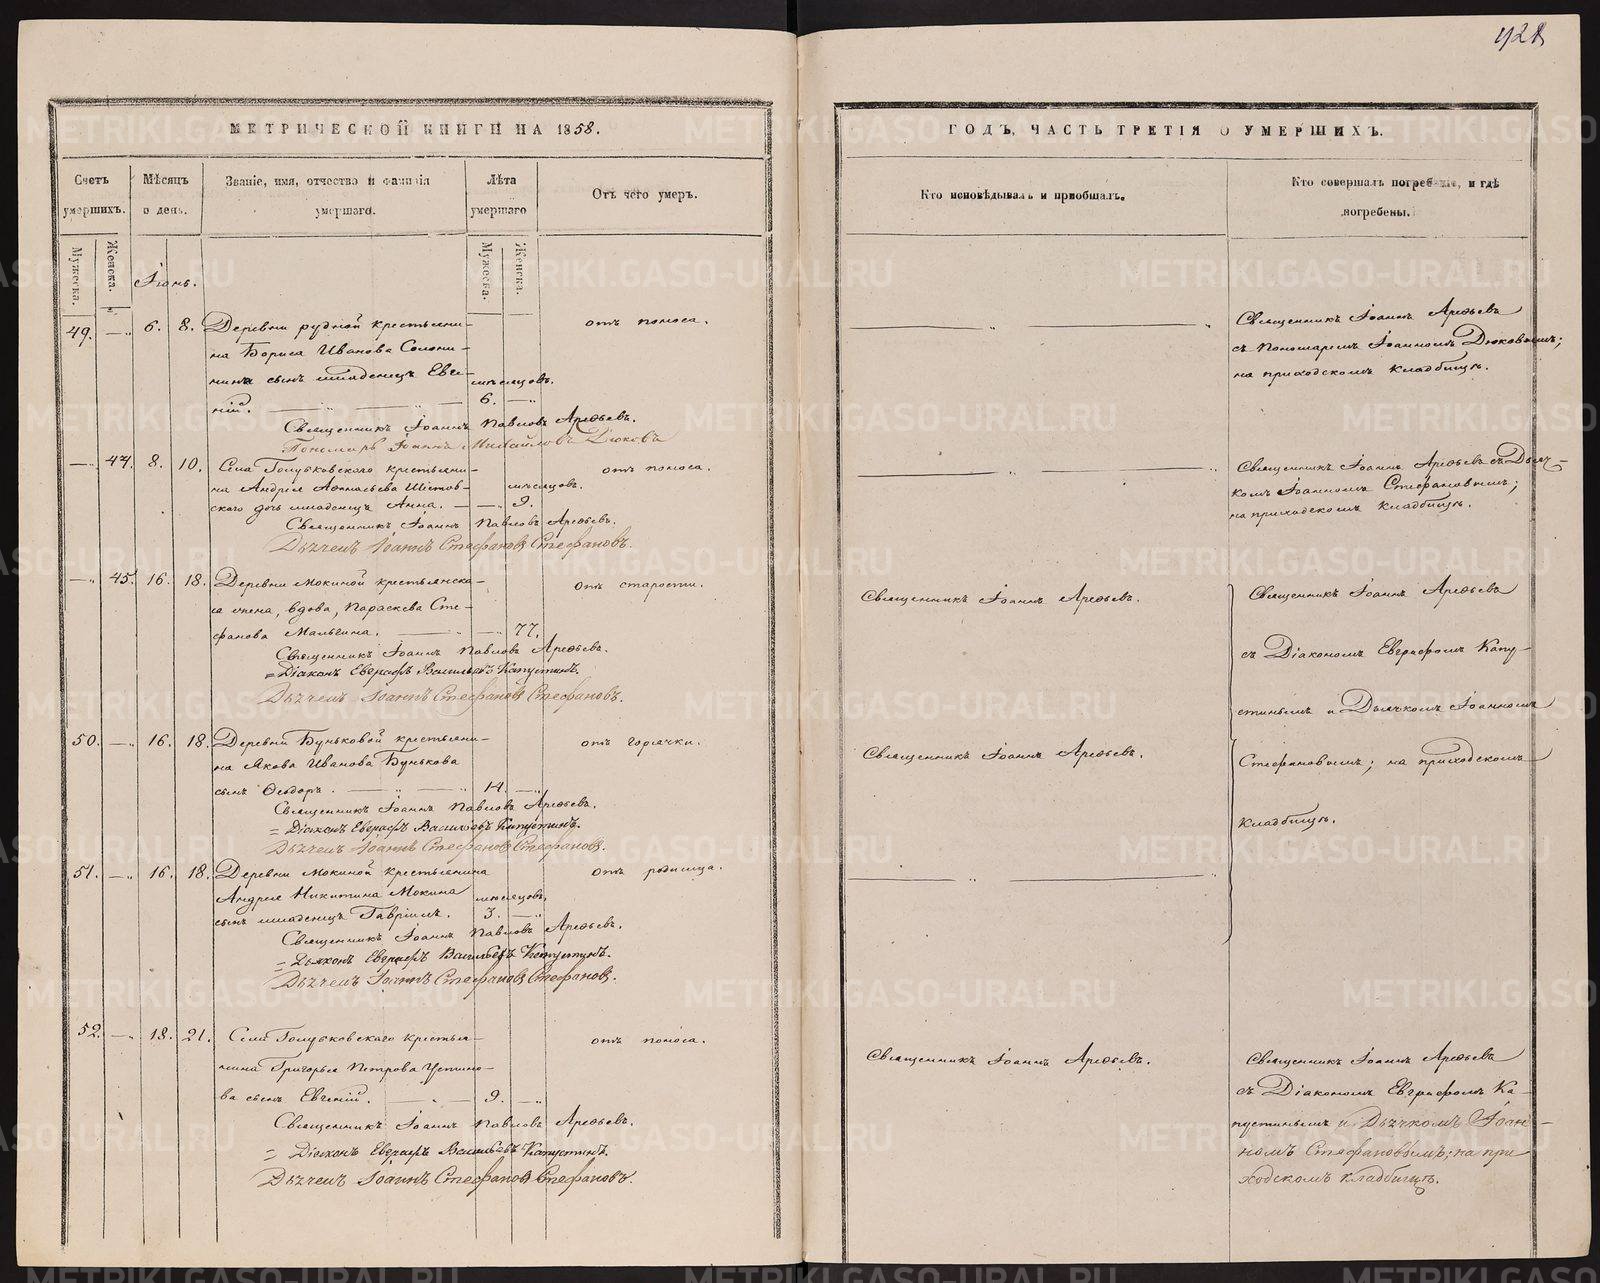 428
МЕТРИЧЕСКОЙ КНИГИ НА 1858.
Счетъ умершихъ.
Мужеска.
Женска.
Мѣсяцъ и день.
Званіе, имя, отчество и фамилія умершаго.
Лѣта умершаго
Мужеска.
Женска.
Отъ чего умеръ.
Іюнь.
49. — 6. 8. Деревни рудной крестьяни-
на Бориса Иванова Солони-
нина сынъ младенецъ Евге-
ній.
мѣсяцовъ.
6. —
отъ поноса.
Священникъ Іоаннъ Павловъ Арефьевъ.
Пономарь Іоаннъ Михайловъ Дюковъ
— 44. 8. 10. Села Голубковскаго крестьяни-
на Андрея Афанасьева Шестов-
скаго дочь младенецъ Анна.
мѣсяцовъ.
— 9.
отъ поноса.
Священникъ Іоаннъ Павловъ Арефьевъ.
Дьячекъ Іоаннъ Стефановъ Стефановъ.
— 45. 16. 18. Деревни Мокиной крестьянска-
я жена, вдова, Параскева Сте-
фанова Мальгина. — 77.
отъ старости.
Священникъ Іоаннъ Павловъ Арефьевъ.
= Діаконъ Евграфъ Васильевъ Капустинъ.
Дьячекъ Іоаннъ Стефановъ Стефановъ.
50. — 16. 18. Деревни Буньковой крестьяни-
на Якова Иванова Бунькова
сынъ Ѳеодоръ. 14. —
отъ горячки.
Священникъ Іоаннъ Павловъ Арефьевъ.
= Діаконъ Евграфъ Васильевъ Капустинъ.
Дьячекъ Іоаннъ Стефановъ Стефановъ.
51. — 16. 18. Деревни Мокиной крестьянина
Андрея Никитина Мокина
сынъ младенецъ Гавріилъ.
мѣсяцовъ.
3. —
отъ родимца.
Священникъ Іоаннъ Павловъ Арефьевъ.
= Дьяконъ Евграфъ Васильевъ Капустинъ.
Дьячекъ Іоаннъ Стефановъ Стефановъ.
52. — 18. 21. Села Голубковскаго крестья-
нина Григорья Петрова Устино-
ва сынъ Евгеній. 9. —
отъ поноса.
Священникъ Іоаннъ Павловъ Арефьевъ.
= Діаконъ Евграфъ Васильевъ Капустинъ.
Дьячекъ Іоаннъ Стефановъ Стефановъ.
ГОДЪ, ЧАСТЬ ТРЕТІЯ О УМЕРШИХЪ.
Кто исповѣдывалъ и пріобщалъ.
Кто совершалъ погребеніе, и гдѣ
погребены.
Священникъ Іоаннъ Арефьевъ
съ Пономаремъ Іоанномъ Дюковымъ;
на приходскомъ кладбищѣ.
Священникъ Іоаннъ Арефьевъ съ Дьяч-
комъ Іоанномъ Стефановымъ;
на приходскомъ кладбищѣ.
Священникъ Іоаннъ Арефьевъ.
Священникъ Іоаннъ Арефьевъ
съ Діакономъ Евграфомъ Капу-
стинымъ и Дьячкомъ Іоанномъ
Священникъ Іоаннъ Арефьевъ.
Стефановымъ; на приходскомъ
кладбищѣ.
Священникъ Іоаннъ Арефьевъ.
Священникъ Іоаннъ Арефьевъ
съ Діакономъ Евграфомъ Ка-
пустинымъ и Дьячкомъ Іоан-
номъ Стефановымъ; на при
ходскомъ кладбищѣ.
METRIKI.GASO-URAL.RU